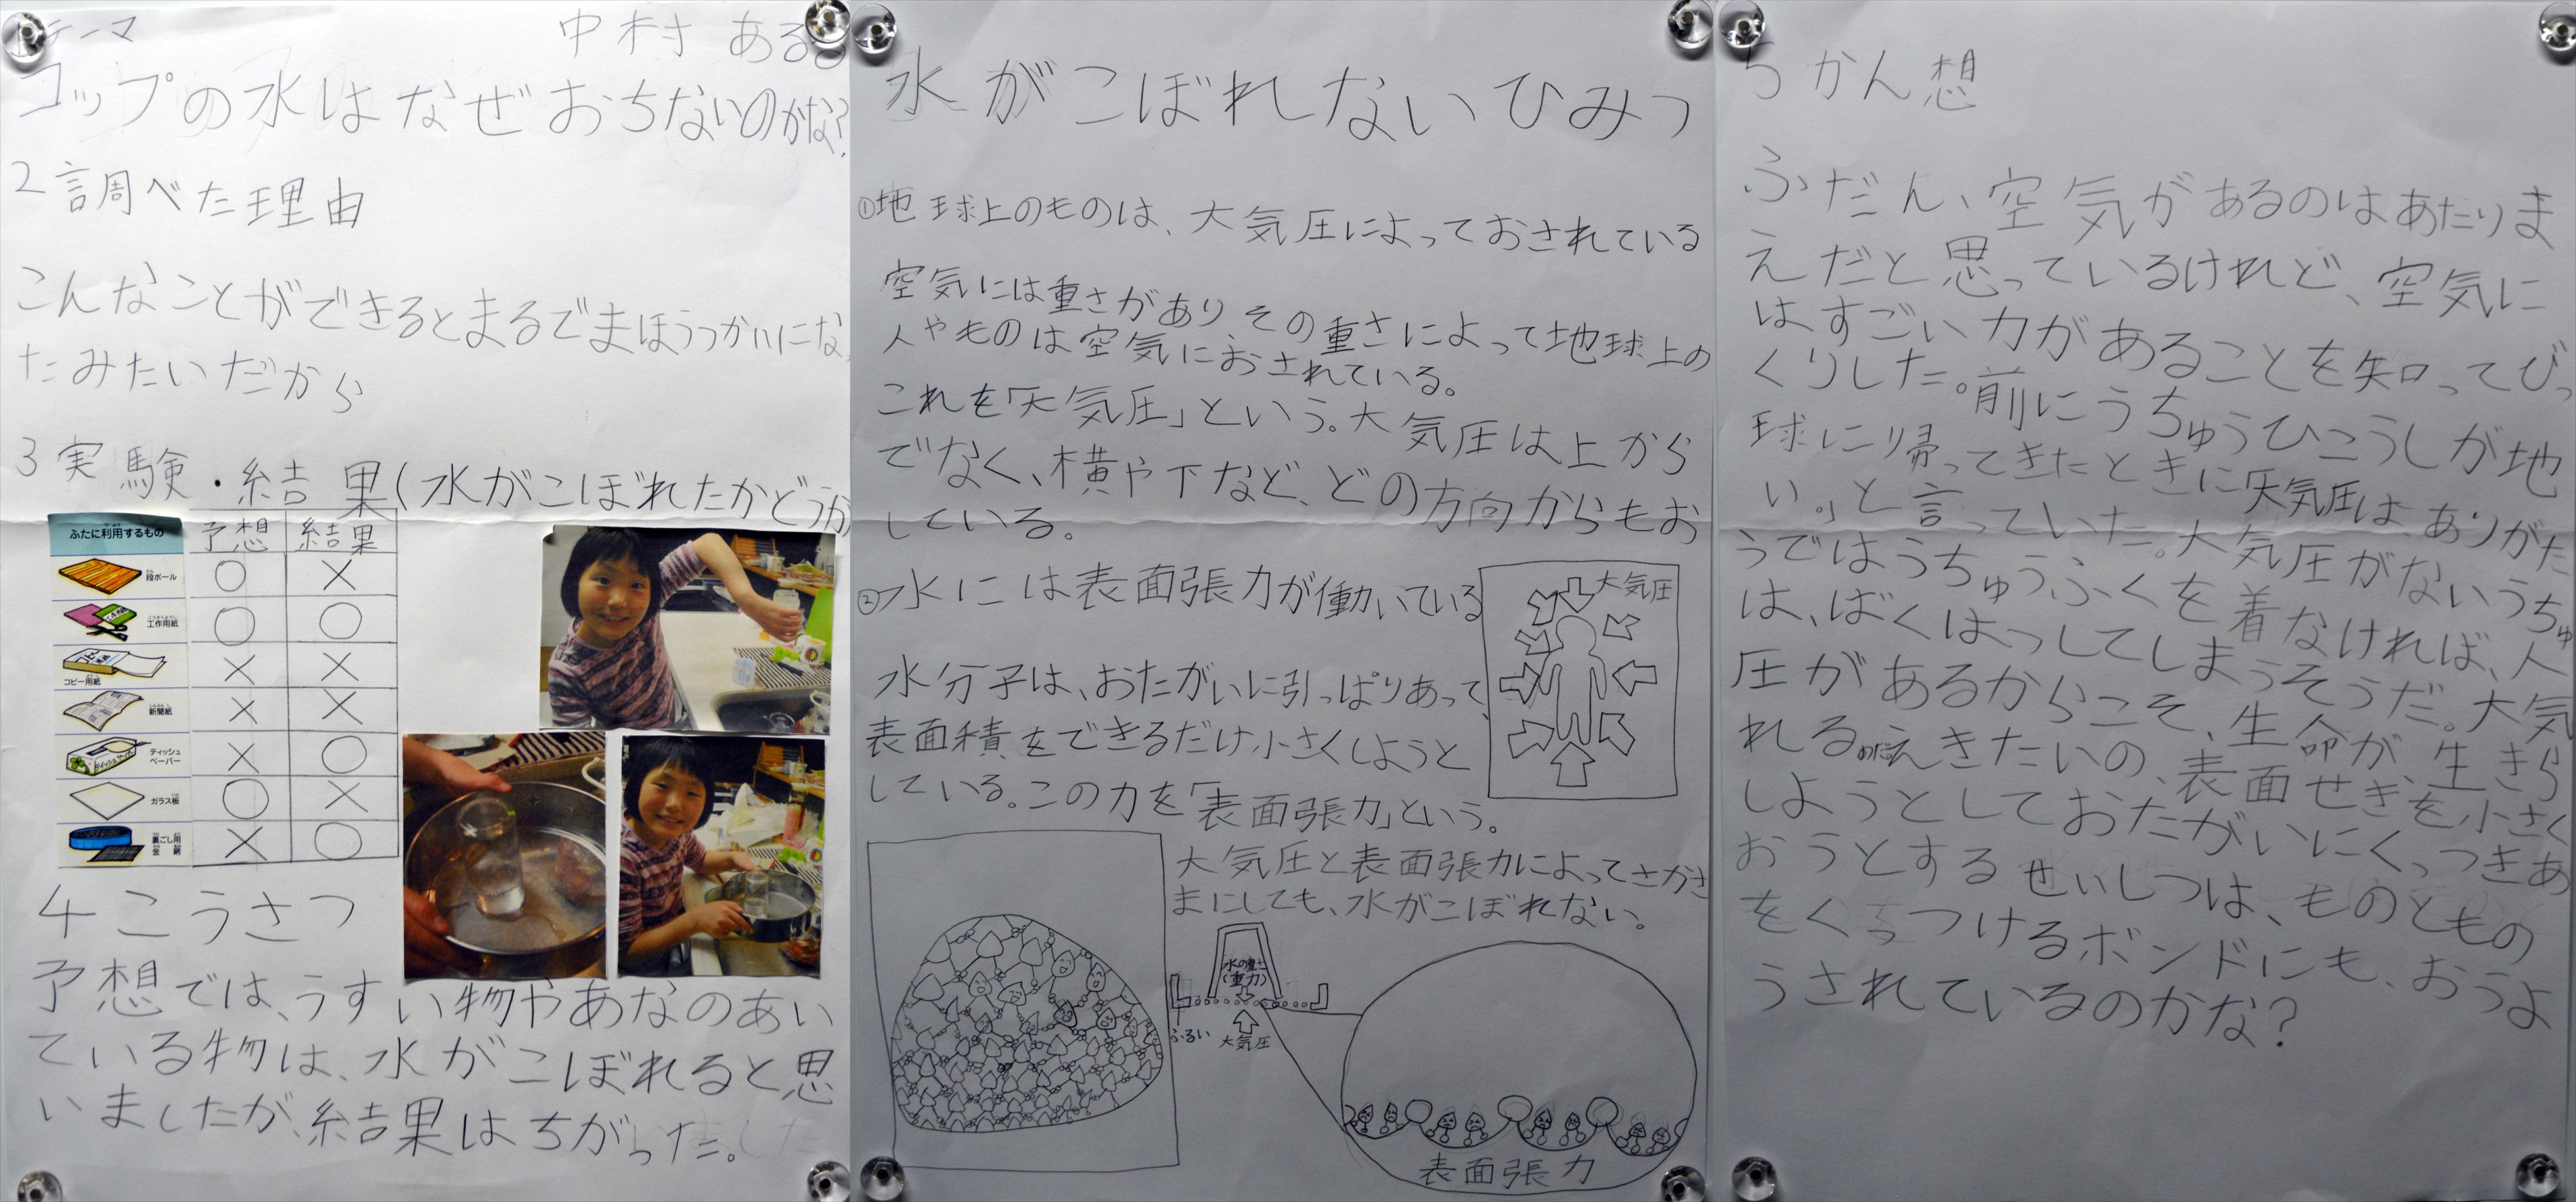 1テーマ
中村 ある
コップの水はなぜおちないのかな?
2 調べた理由
こんなことができるとまるでまほうつかいになっ
たみたいだから
3 実験・結果(水がこぼれたかどうか)
ふたに利用するもの 予想 結果
段ボール ○ ×
工作用紙 ○ ○
コピー用紙 × ×
新聞紙 × ×
ティッシュペーパー × ○
ガラス板 ○ ×
裏ごし用金網 × ○
4 こうさつ
予想では、うすい物やあなのあい
ている物は、水がこぼれると思
いましたが、結果はちがった。
水がこぼれないひみつ
①地球上のものは、大気圧によっておされている
空気には重さがあり その重さによって地球上の
人やものは空気におされている。
これを「大気圧」という。大気圧は上から
でなく、横や下など、どの方向からもお
している。
②水には表面張力が働いている
大気圧
水分子は、おたがいに引っぱりあって、
表面積をできるだけ小さくしようと
している。この力を「表面張力」という。
大気圧と表面張力によってさかさ
まにしても、水がこぼれない。
水の重さ
(重力)
ふるい
大気圧
表面張力
5 かん想
ふだん、空気があるのはあたりま
えだと思っているけれど、空気に
はすごい力があることを知ってびっ
くりした。前にうちゅうひこうしが地
球に帰ってきたときに「大気圧は、ありがた
い。」と言っていた。大気圧がないうちゅ
うではうちゅうふくを着なければ、人
は、ばくはつしてしまうそうだ。大気
圧があるからこそ、生命が、生きら
れる。えきたいの、表面せきを小さく
しようとしておたがいにくっつきあ
おうとするせいしつは、ものともの
をくっつけるボンドにも、おうよ
うされているのかな?